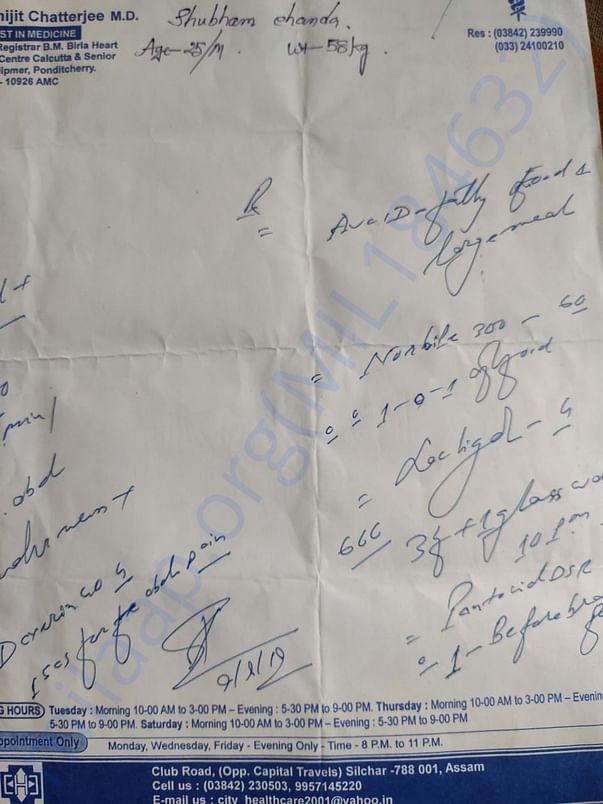 nijit Chatterjee M.D.
ST IN MEDICINE
Registrar B.M. Birla Heart
Centre Calcutta & Senior
Jipmer, Ponditcherry.
- 10926 AMC
Shubham chanda.
Age-25/M. Wt-58kg.
Res : (03842) 239990
(033) 24100210
Rx
Avoid - fatty foods
large meal
= Norbile 300 - 60
1-0-1
=
3 + 1 glass
10 pm
= Pantocid DSR
1 - Before
abd
+
for abd pain
ilaap.org(MIL1846632)
G HOURS Tuesday : Morning 10-00 AM to 3-00 PM – Evening : 5-30 PM to 9-00 PM. Thursday : Morning 10-00 AM to 3-00 PM – Evenin
5-30 PM to 9-00 PM. Saturday : Morning 10-00 AM to 3-00 PM – Evening : 5-30 PM to 9-00 PM
ppointment Only Monday, Wednesday, Friday - Evening Only - Time - 8 P.M. to 11 P.M.
Club Road, (Opp. Capital Travels) Silchar -788 001, Assam
Cell us : (03842) 230503, 9957145220
E-mail us : city_healthcare2001@yahoo.in